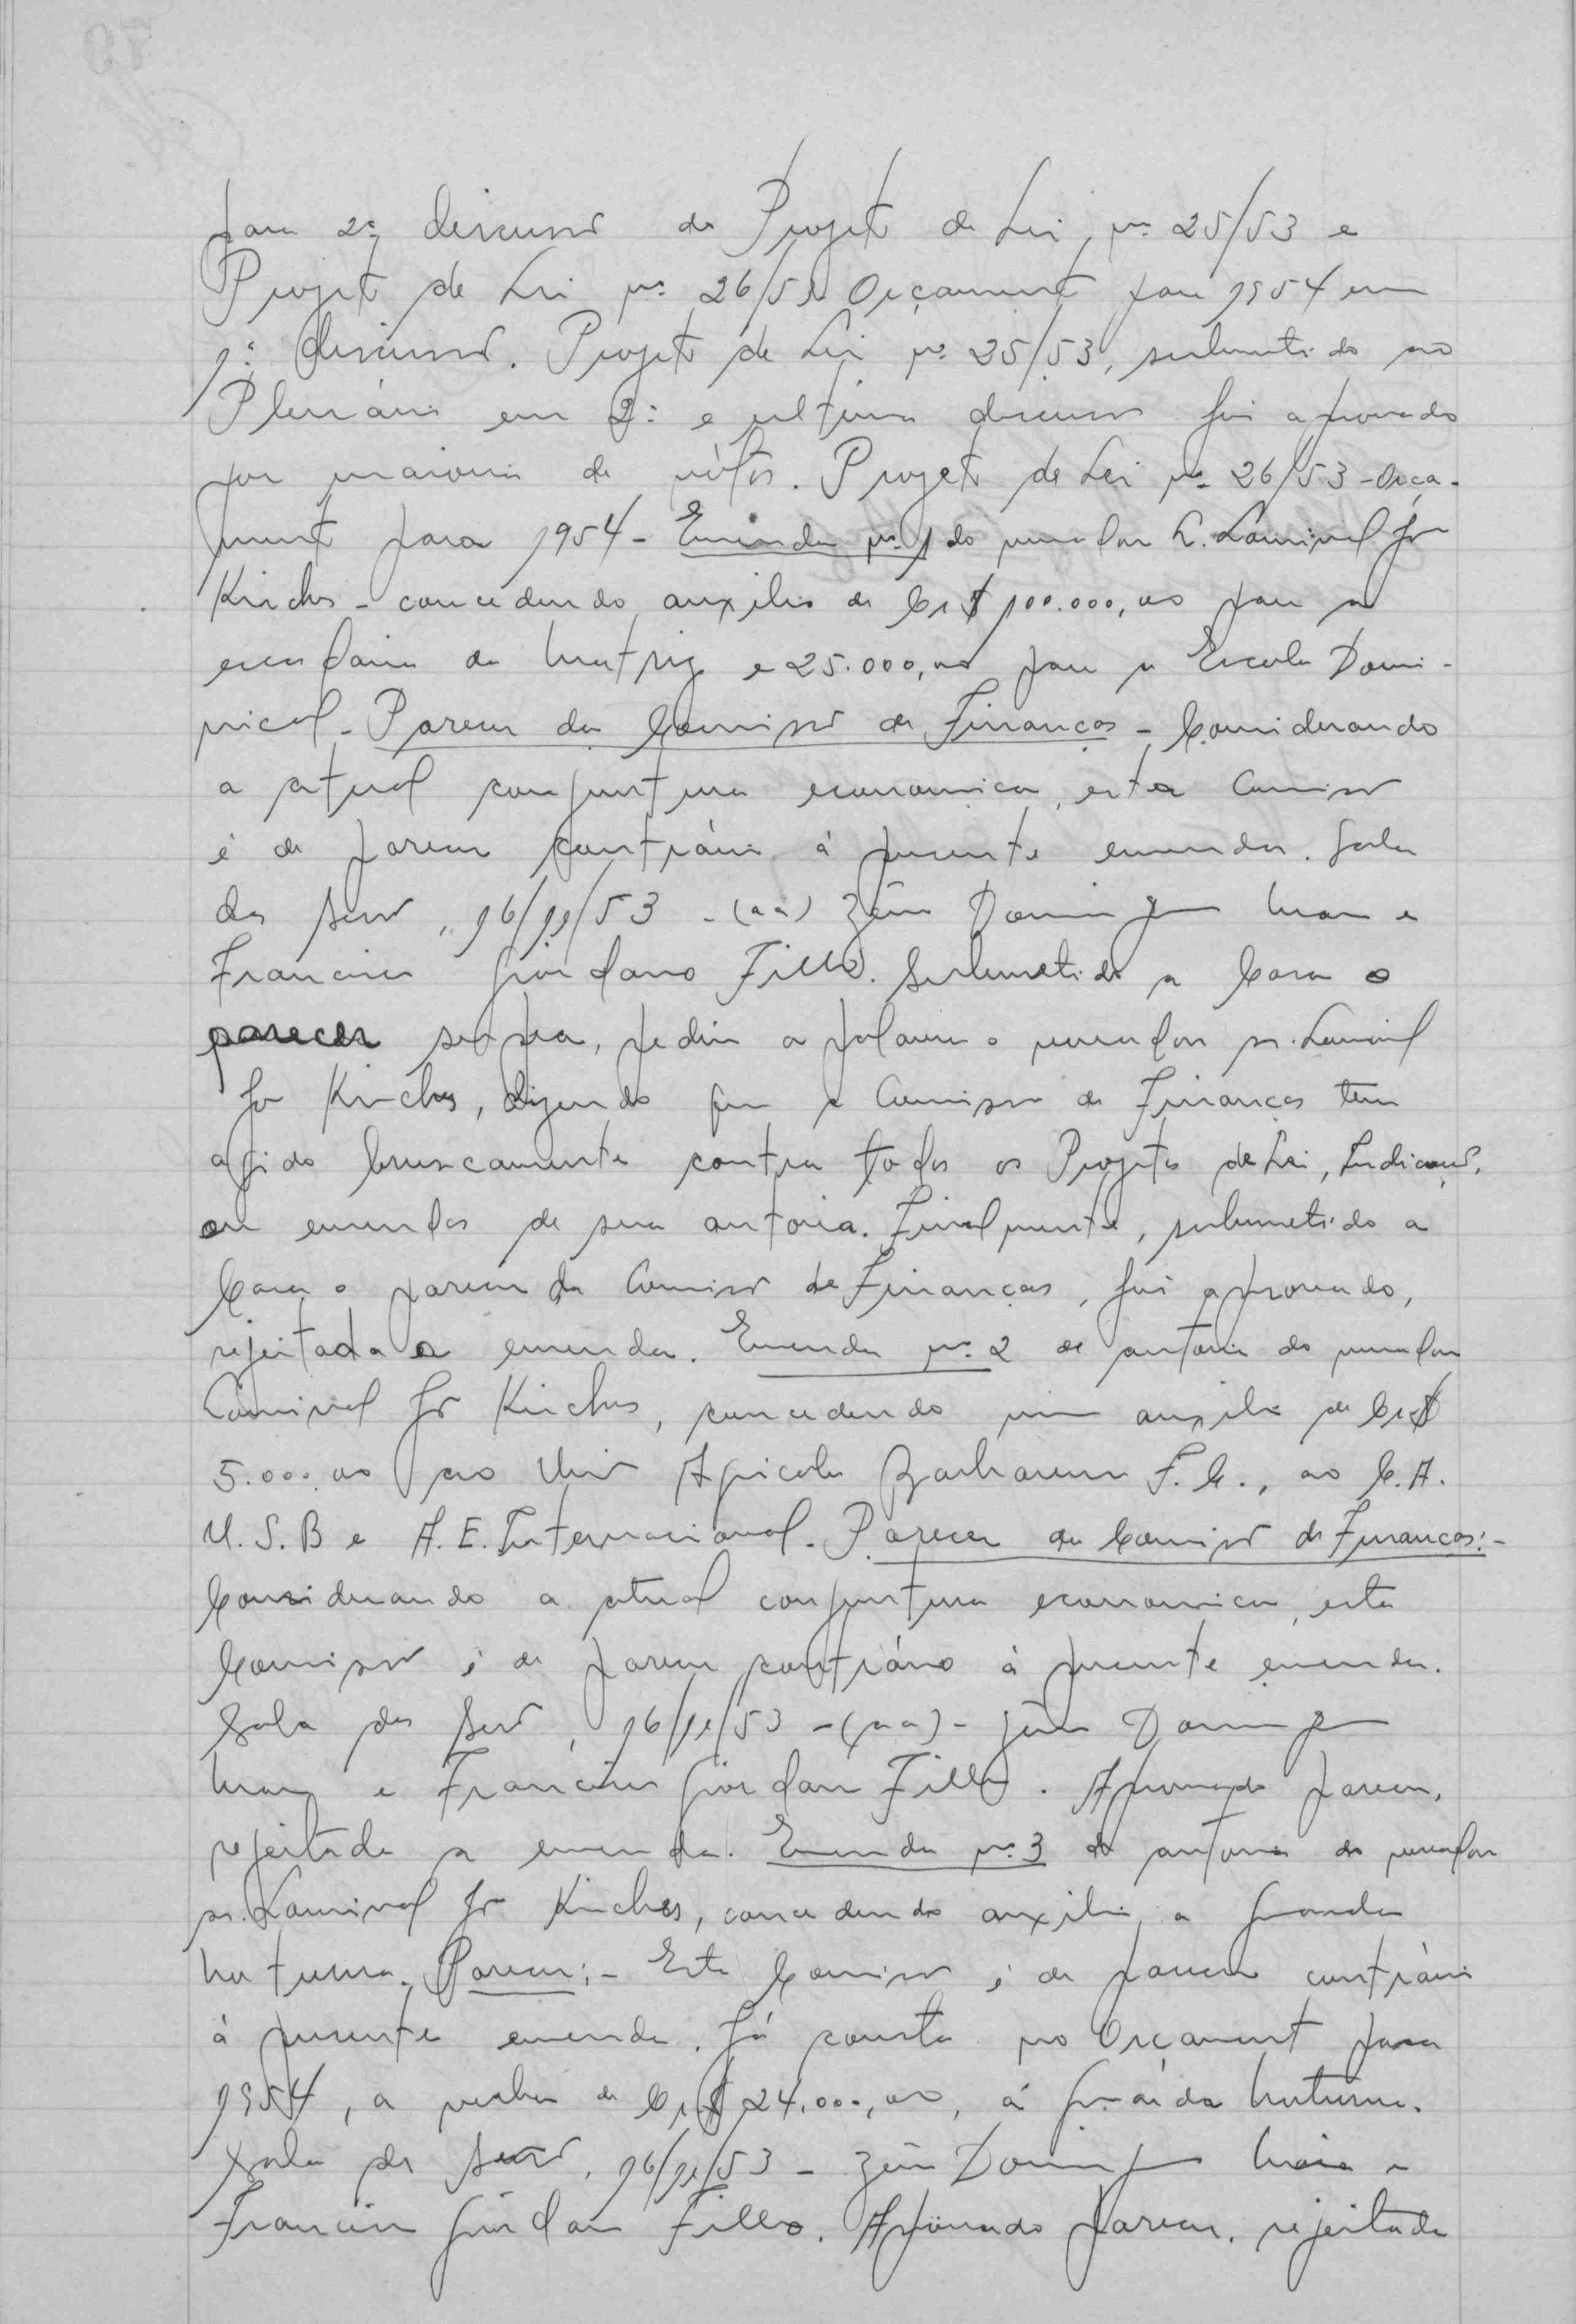 para 2ª discussão do Projeto de Lei nº 25/53 e
Projeto de Lei nº 26/53 Orçamento para 1954 em
1ª discussão. Projeto de Lei nº 25/53, submetido ao
Plenário em 2ª e ultima discussão foi aprovado
por maioria de vótos. Projeto de Lei nº 26/53 - Orça-
mento para 1954 - Emenda nº 1 do vereador L. Lourival Jº
Kirches - concedendo auxilio de Cr$ 100.000,00 para a
escadaria da Matriz e 25.000,00 para a Escola Domi-
nical - Parecer da Comissão de Finanças - Considerando
a atual conjuntura economica, esta Comissão
é de parecer contrário á presente emenda. Sala
das sessões, 16/11/53 - (aa) Domingos Maia e
Francisco Giordano Filho. Submetido a Casa o
parecer supra, pediu a palavra o vereador sr. Lourival
Jº Kirches, dizendo que a Comissão de Finanças tem
agido bruscamente contra todos os Projetos de Lei, Indicações,
ou emendas de sua autoria. Finalmente, submetido a
Casa o parecer da Comissão de Finanças, foi aprovado,
rejeitada a emenda. Emenda nº 2 de autoria do vereador
Lourival Jº Kirches, concedendo um auxilio de Cr$
5.000,00 ao União Agricola Barbarense F.C., ao C.A.
U.S.B e A.E. Internacional. Parecer da Comissão de Finanças: -
Considerando a atual conjuntura economica, esta
Comissão é de parecer contrário à presente emenda.
Sala das sessões, 16/11/53 - (aa) - Domingos
Maia e Francisco Giordano Filho. Aprovado parecer,
rejeitada a emenda. Emenda nº 3 de autoria do vereador
sr. Lourival Jº Kirches, concedendo auxilio a Guarda
Noturna. Parecer: - Esta Comissão é de parecer contrário
á presente emenda. Já consta no Orçamento para
1954, a verba de Cr$ 24.000,00, á Guarda Noturna.
Sala das sessões, 16/11/53 - Domingos Maia e
Francisco Giordano Filho. Aprovado parecer, rejeitada